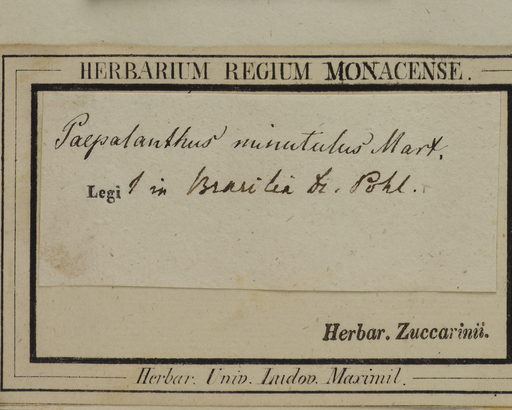 HERBARIUM REGIUM MONACENSE.
Paepalanthus minutulus Mart.
Legit in Brasilia Dr. Pohl.
Herbar. Zuccarinii.
Herbar. Univ. Ludov. Maximil.